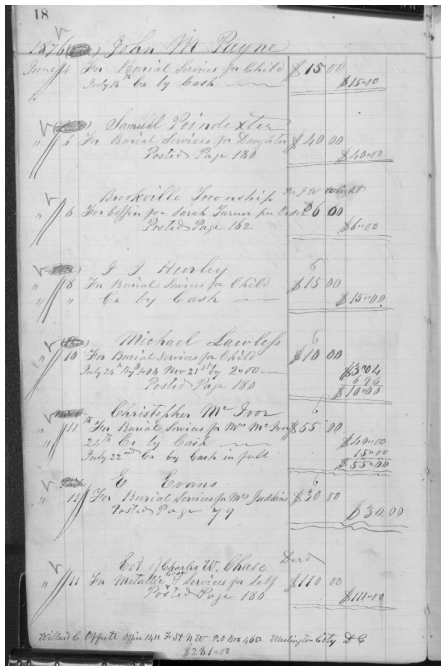 18
1876 John M Payne
June 4 For Burial Services for Child $15 00
July 14th Cr by Cash $15 00
Samuel Poindexter
" 6 For Burial Services for Daughter $40 00
Posted Page 180 $40 00
Brookville Township
" 6 For Coffin for Sarah Turner per Order $6 00
Posted Page 162 $6 00
J J Hurley
" 8 For Burial Services for Child $15 00
" " Cr by Cash $15 00
Michael Lawless
" 10 For Burial Services for Child $10 00
July 24th Nov 21st by 2 00 $3 04
Posted Page 180 6 96
$10 00
Christopher Mc Ivor
" 11th For Burial Services for Mrs Mc Ivor $55 00
24th Cr by Cash $40 00
15 00
July 22nd Cr by Cash in full $55 00
E Evans
" 12 For Burial Services for Mrs Judkins $30 00
Posted Page 79 $30.00
Est of Charles W. Chase Decd
" 14 For Metallic & Services for Self $110 00
Posted Page 180 $110 00
Willard C Offutt Office 1411 F St N W P.O Box 460 Washington City D C
$281 00